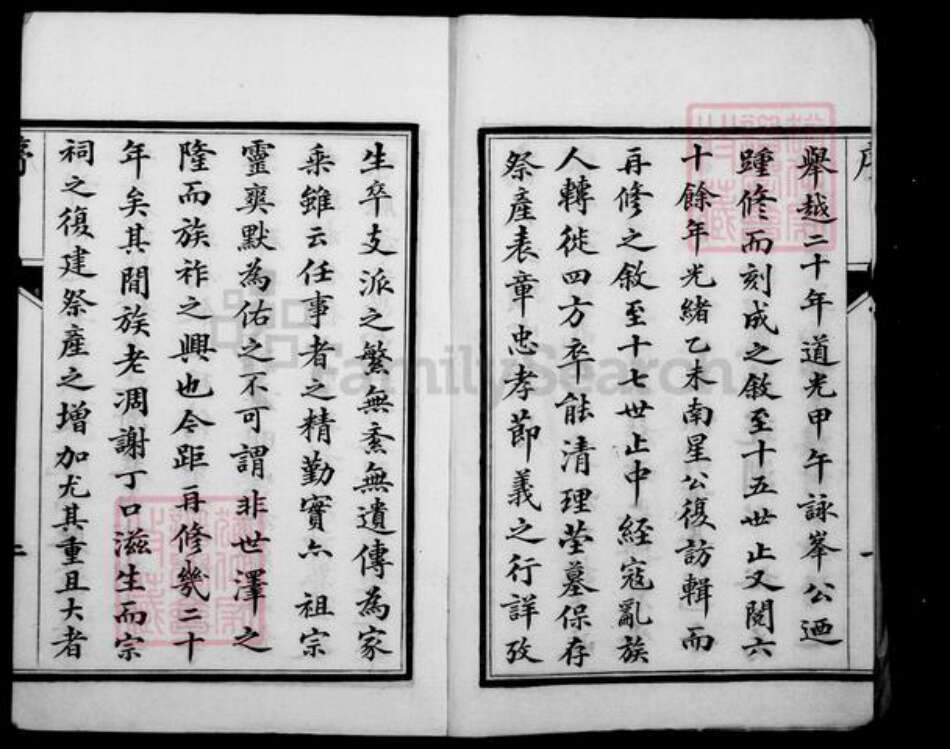 舉越二十年道光甲午詠峯公迺
踵修而刻成之敘至十五世止又閱六
十餘年光緒乙未南星公復訪輯而
再修之敘至十七世止中經寇亂族
人轉徙四方卒能清理塋墓保存
祭產表章忠孝節義之行詳攷
生卒支派之繁無紊無遺傳為家
乘雖云任事者之精勤實亦 祖宗
靈爽默為佑之不可謂非世澤之
隆而族祚之興也今距再修幾二十
年矣其間族老凋謝丁口滋生而宗
祠之復建祭產之增加尤其重且大者
序
二
FamilySearch